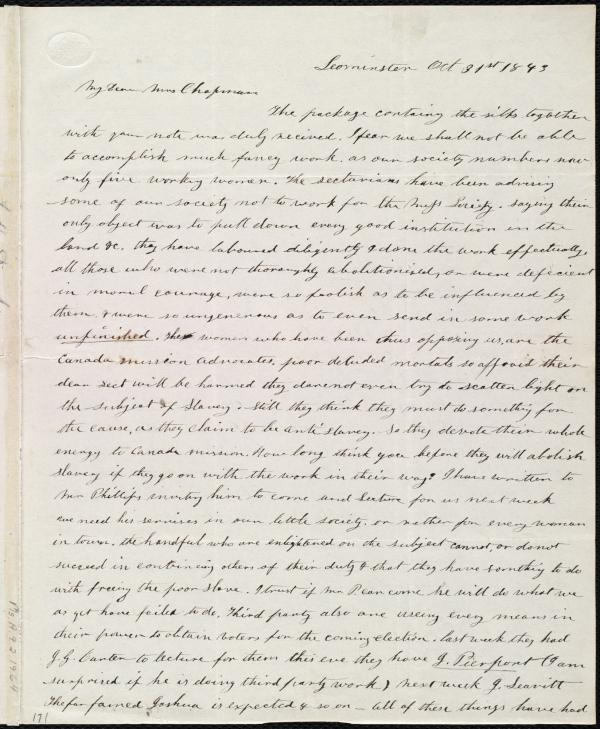 Leominster Oct 31st 1843
My Dear Mrs Chapman
The package containg the silks together
with your note was duly recived. I fear we shall not be able
to accomplish much fancy work. as our society numbers now
only five working women. The sectarians have been advising
some of our society not to work for the Mass Society. saying their
only object was to pull down every good institution in the
land &c. they have laboured diligently & done the work effectually.
all those who were not thoroughly abolitionised, or were deficient
in moral courage, were so foolish as to be influenced by
them. & were so ungenerous as to even send in some work
unfinished. The women who have been thus opposing us, are the
Canada mission advocates. poor deluded mortals so affraid their
dear sect will be harmed they dare not even try to scatter light on
the subject of Slavery. Still they think they must do something for
the cause, as they claim to be anti slavery. So they devote their whole
energy to Canada mission. How long think you before they will abolish
slavery if they go on with the work in their way? I have written to
Mr Phillips inviting him to come and Lecture for us next week
we need his services in our little society, or rather for every woman
in town. the handful who are enlightened on the subject cannot, or do not
succeed in convincing others of their duty & that they have something to do
with freeing the poor slave. I trust if Mr P. can come he will do what we
as yet have failed to do. Third party also are useing every means in
their power to obtain voters for the coming election. last week they had
J. G. Carter to lecture for them this eve they have J. Pierpont (I am
surprised if he is doing third party work) next week J. Leavitt
The far famed Joshua is expected & so on — All of these things have had
171